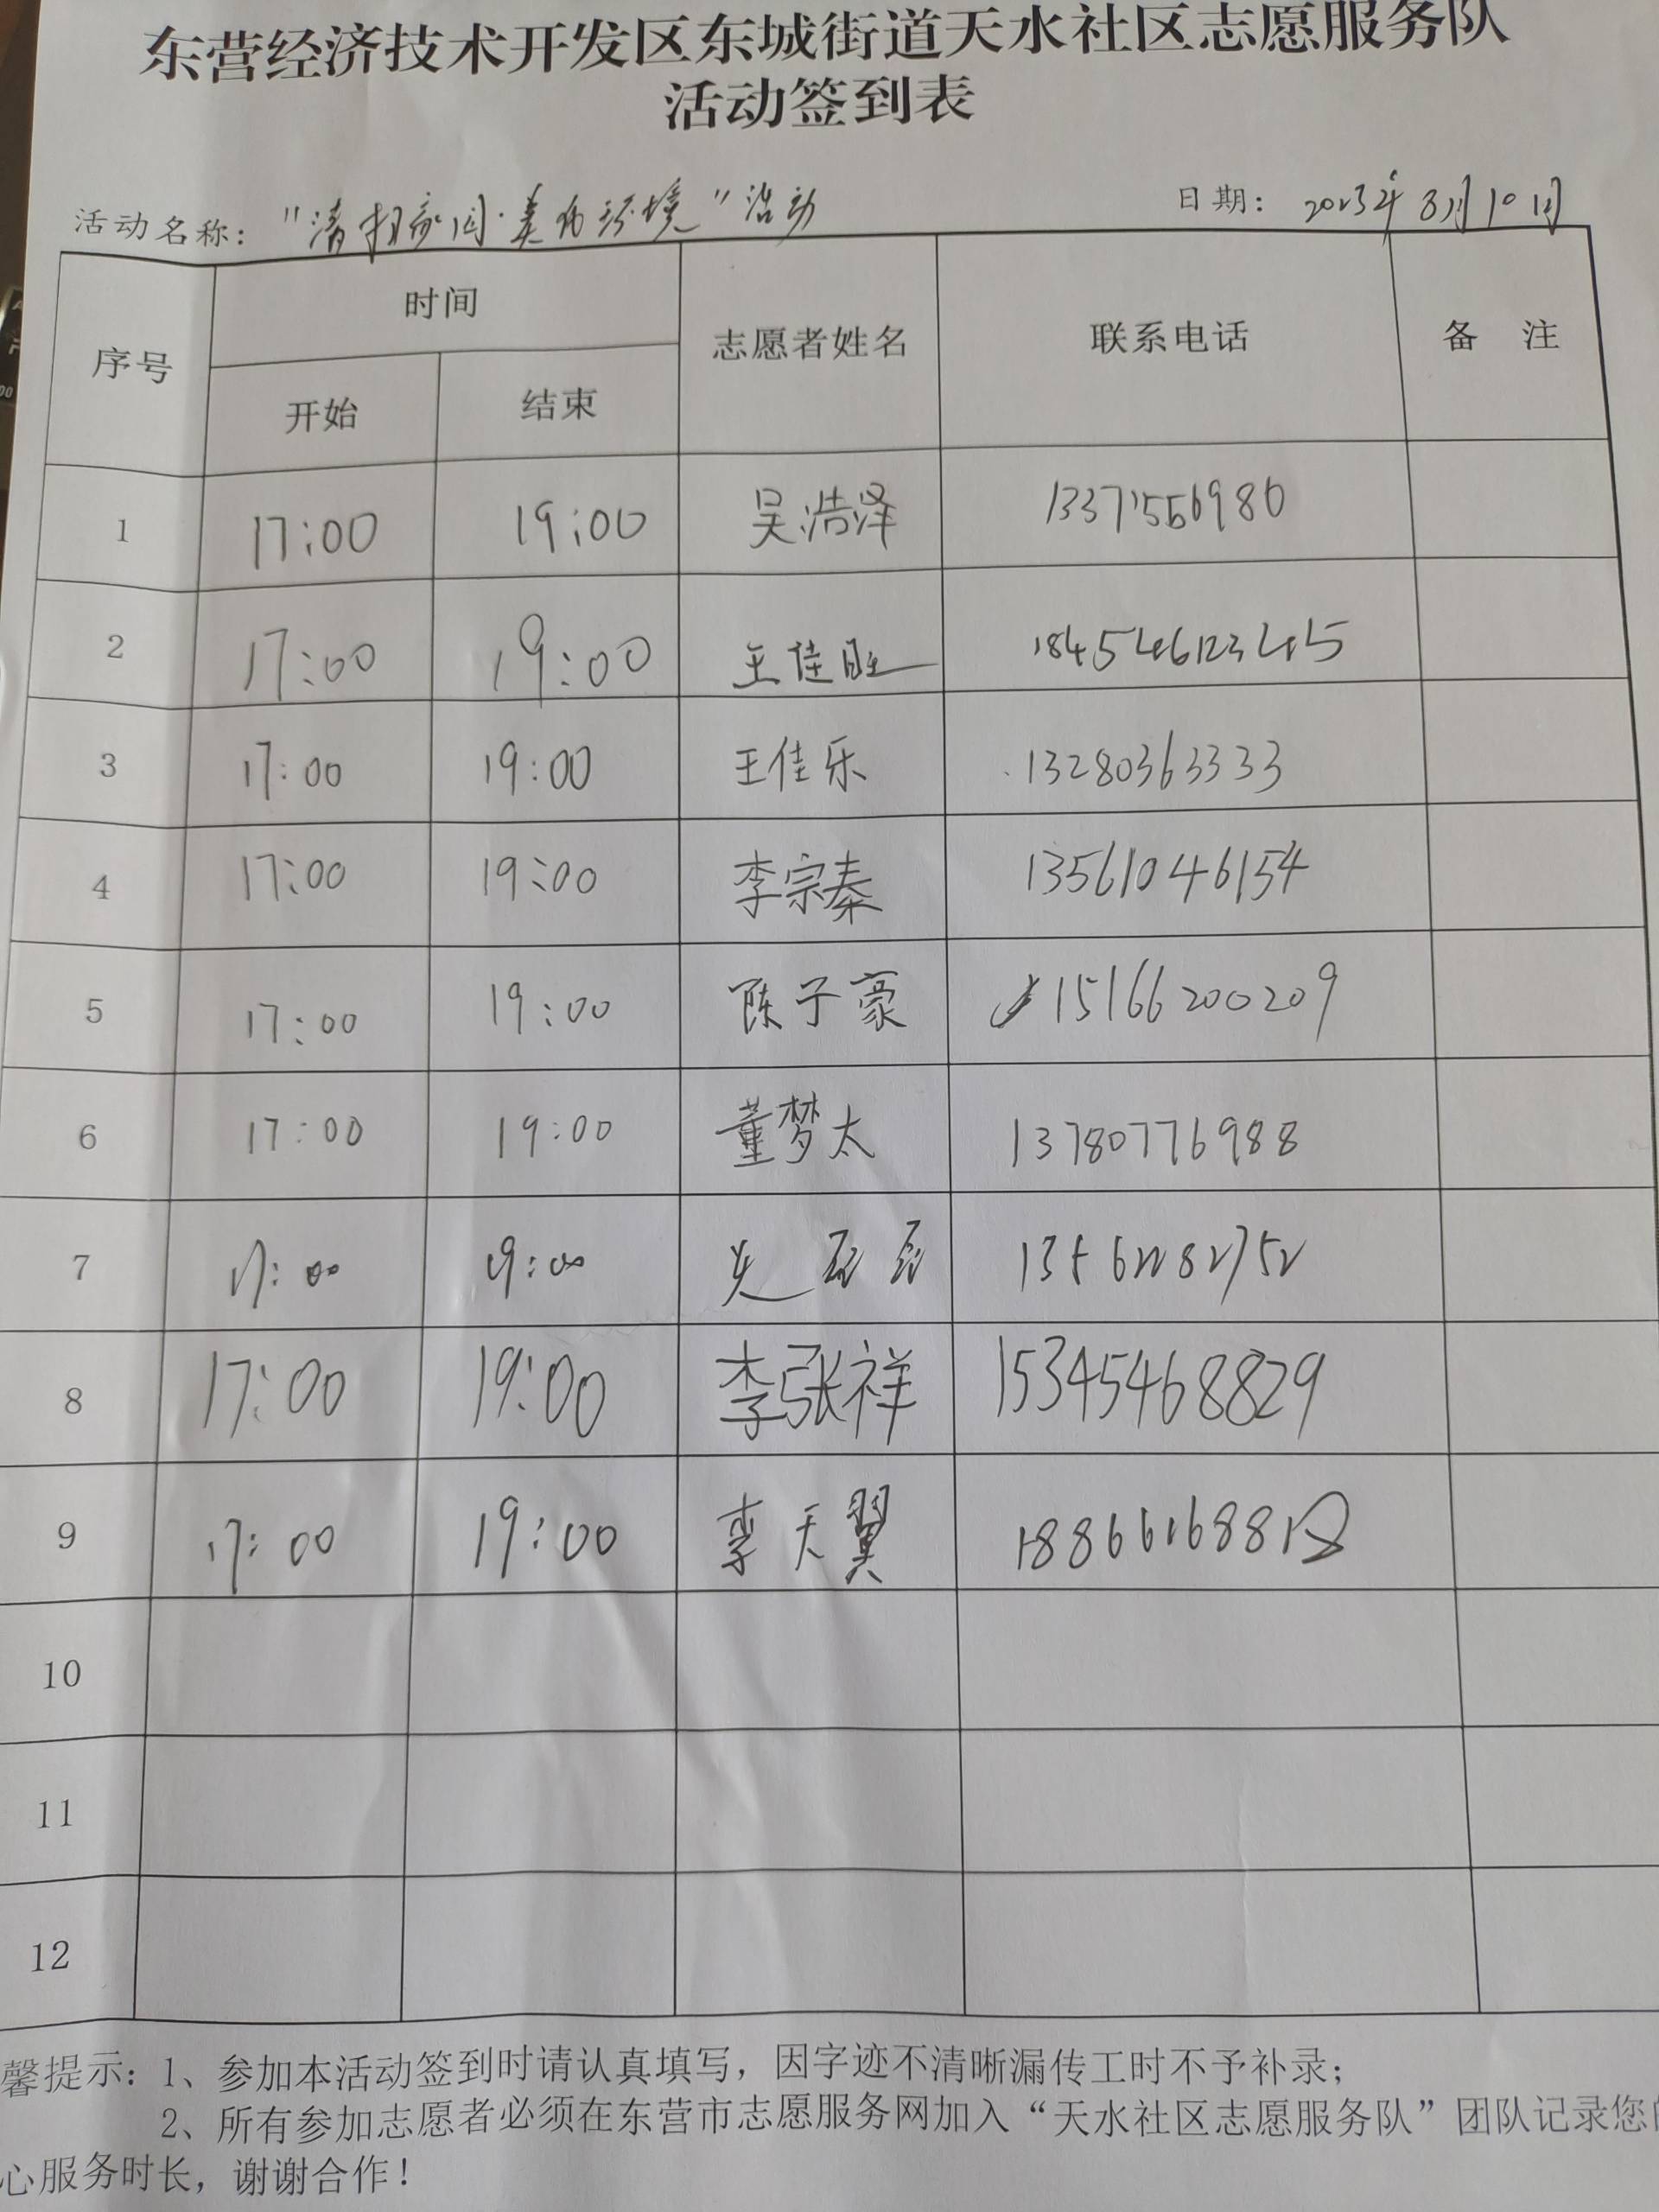 东营经济技术开发区东城街道天水社区志愿服务队
活动签到表
活动名称："清扫家园·美化环境"活动 日期：2023年8月10日
序号 时间 志愿者姓名 联系电话 备 注
开始 结束
1 17:00 19:00 吴浩泽 13371556986
2 17:00 19:00 王佳旺 18454612345
3 17:00 19:00 王佳乐 13280363333
4 17:00 19:00 李宗秦 13561046154
5 17:00 19:00 陈子豪 15166200209
6 17:00 19:00 董梦太 13780776988
7 17:00 19:00
8 17:00 19:00 李张祥 15345468829
9 17:00 19:00 李天翼
10
11
12
馨提示：1、参加本活动签到时请认真填写，因字迹不清晰漏传工时不予补录；
2、所有参加志愿者必须在东营市志愿服务网加入“天水社区志愿服务队”团队记录您的
心服务时长，谢谢合作！